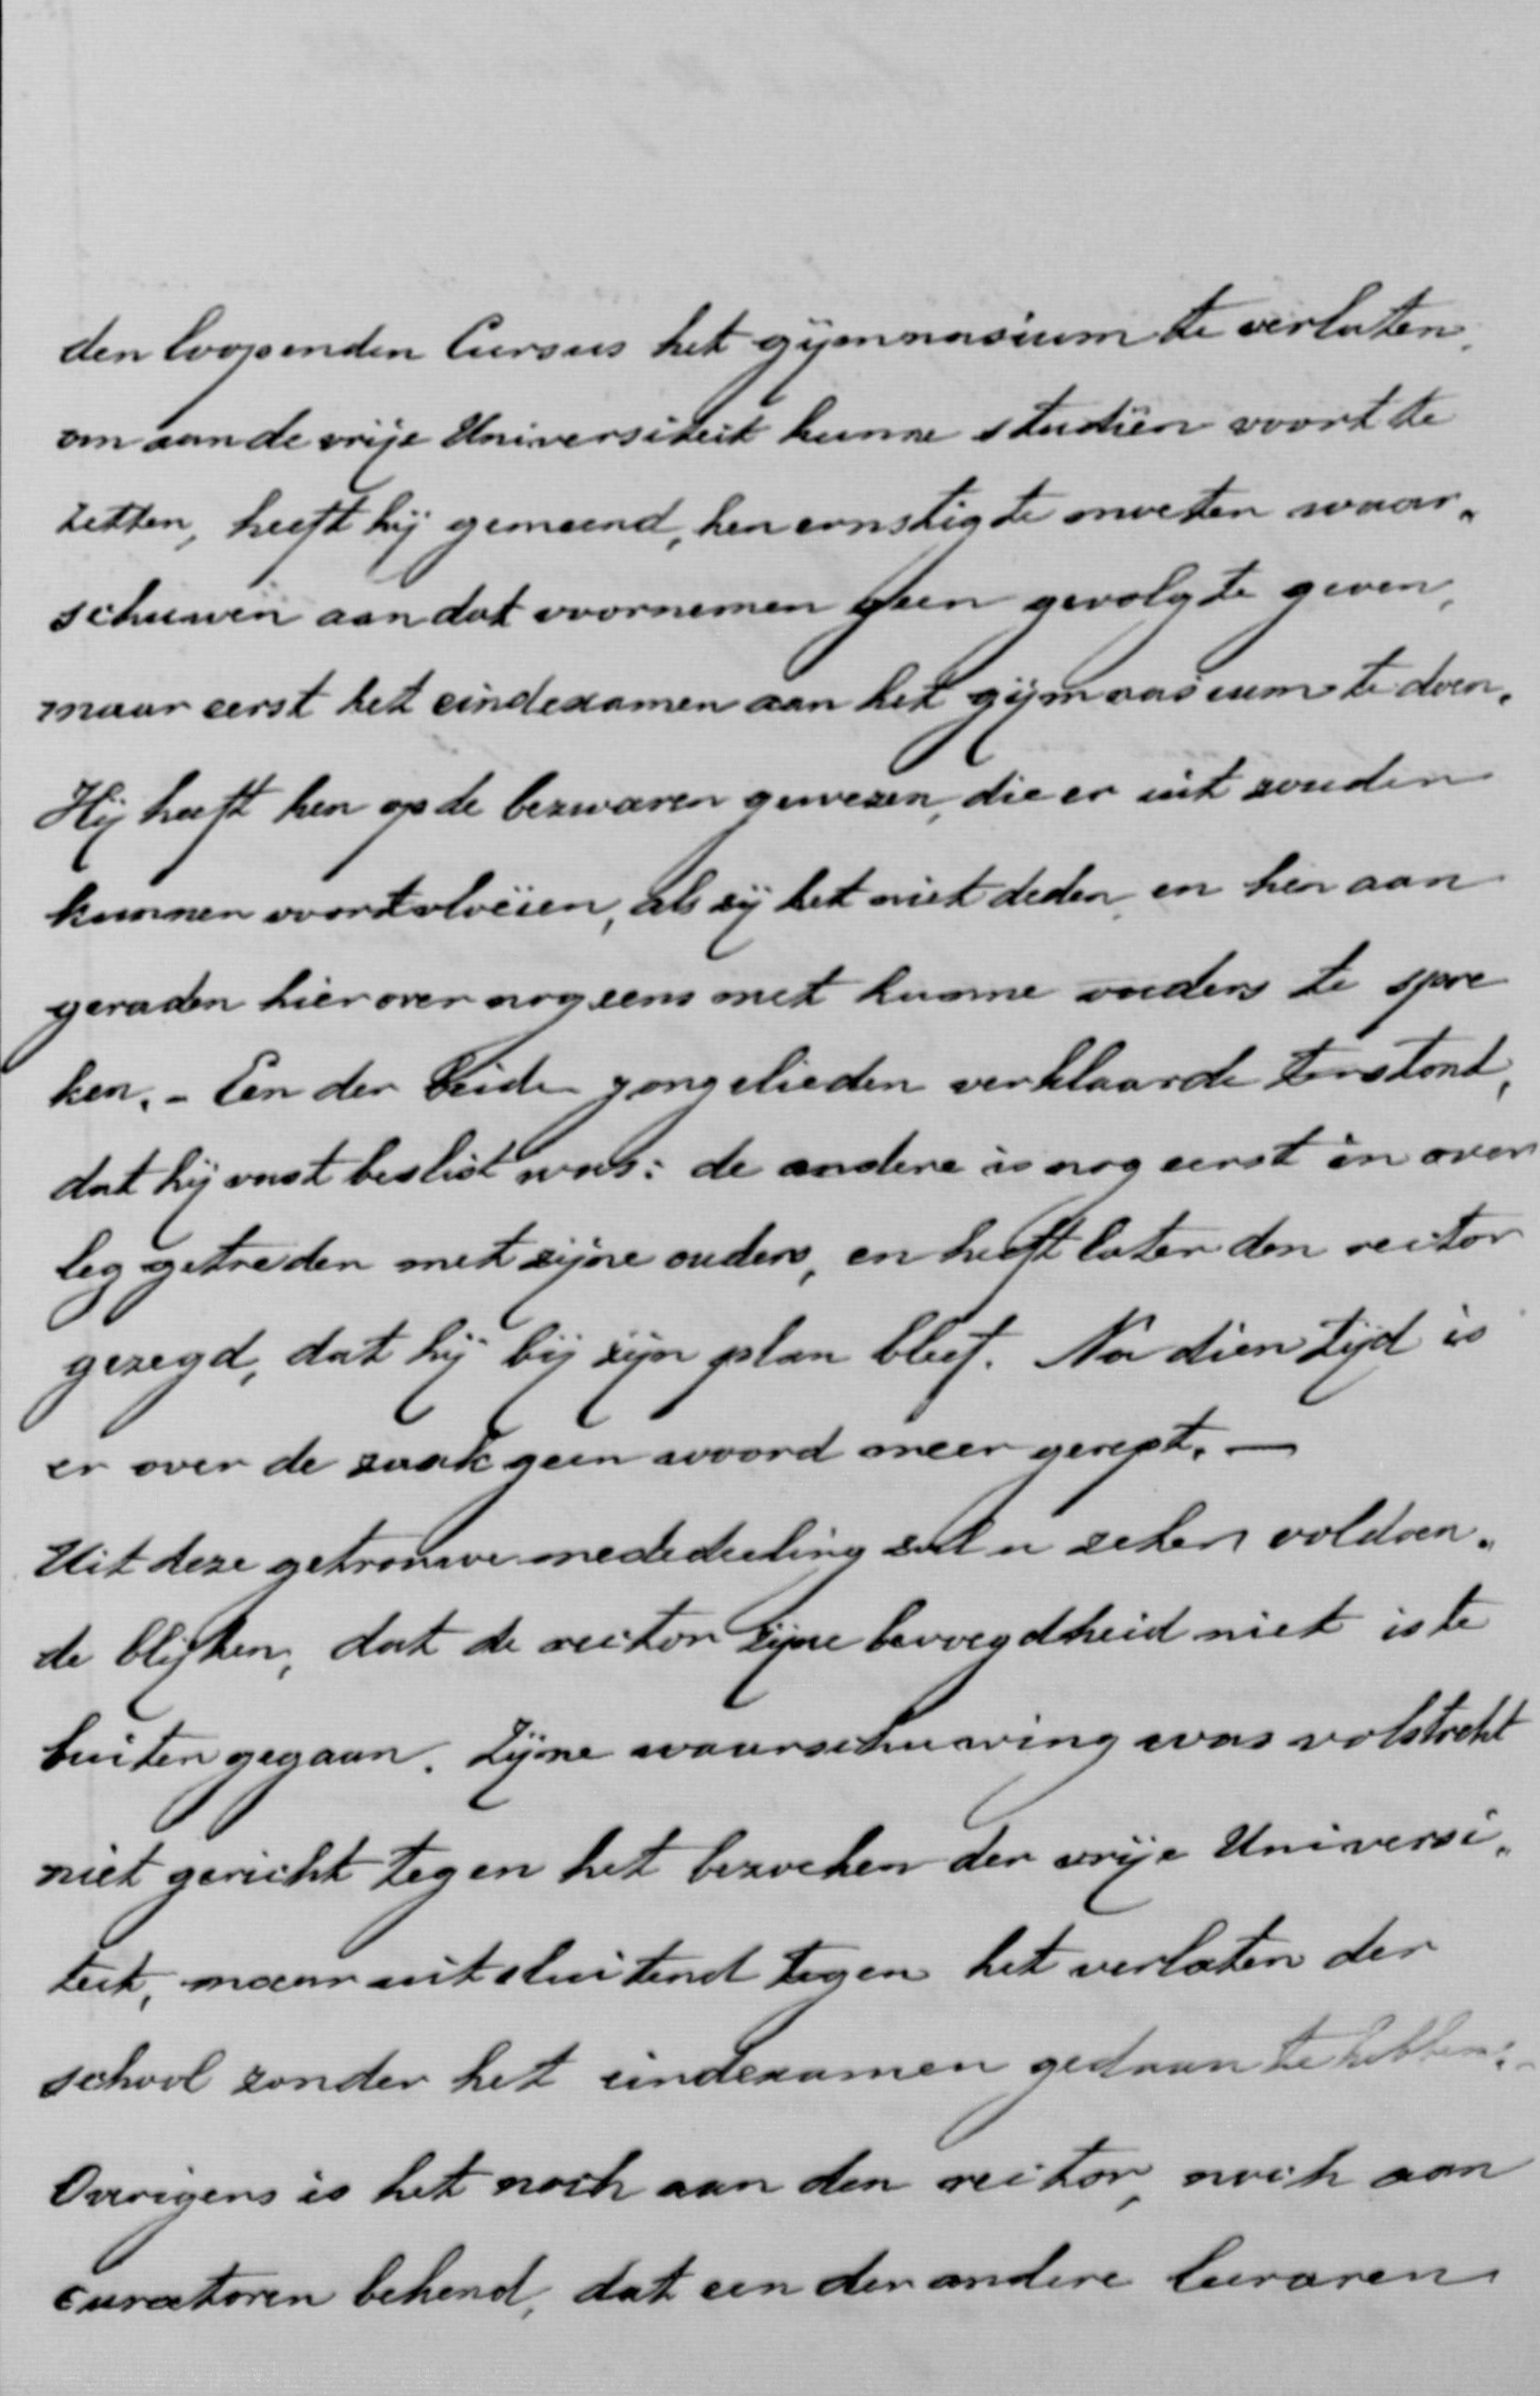 den loopenden Cursus het gymnasium te verlaten,
om aan de vrije Universiteit hunne studiën voort te
zetten, heeft hij gemeend, hen ernstig te moeten waar„
schuwen aan dat voornemen geen gevolg te geven,
maar eerst het eindexamen aan het gymnasium te doen.
Hij heeft hen op de bezwaren gewezen, die er uit zouden
kunnen voortvloeien, als zij het niet deden, en hen aan
geraden hierover nog eens met hunne ouders te spre
ken. - Een der beide jongelieden verklaarde terstond,
dat hij vast beslist was: de andere is nog eerst in over
leg getreden met zijne ouders, en heeft later den rector
gezegd, dat hij bij zijn plan bleef. Na dien tijd is
er over de zaak geen woord meer gerept. —
Uit deze getrouwe mededeeling zal u zeker voldoen„
de blijken, dat de rector zijne bevoegdheid niet is te
buiten gegaan. Zijne waarschuwing was volstrekt
niet gericht tegen het bezoeken der vrije Universi„
teit, maar uitsluitend tegen het verlaten der
school zonder het eindexamen gedaan te hebben. -
Overigens is het noch aan den rector, noch aan
curatoren bekend, dat een der andere leeraren